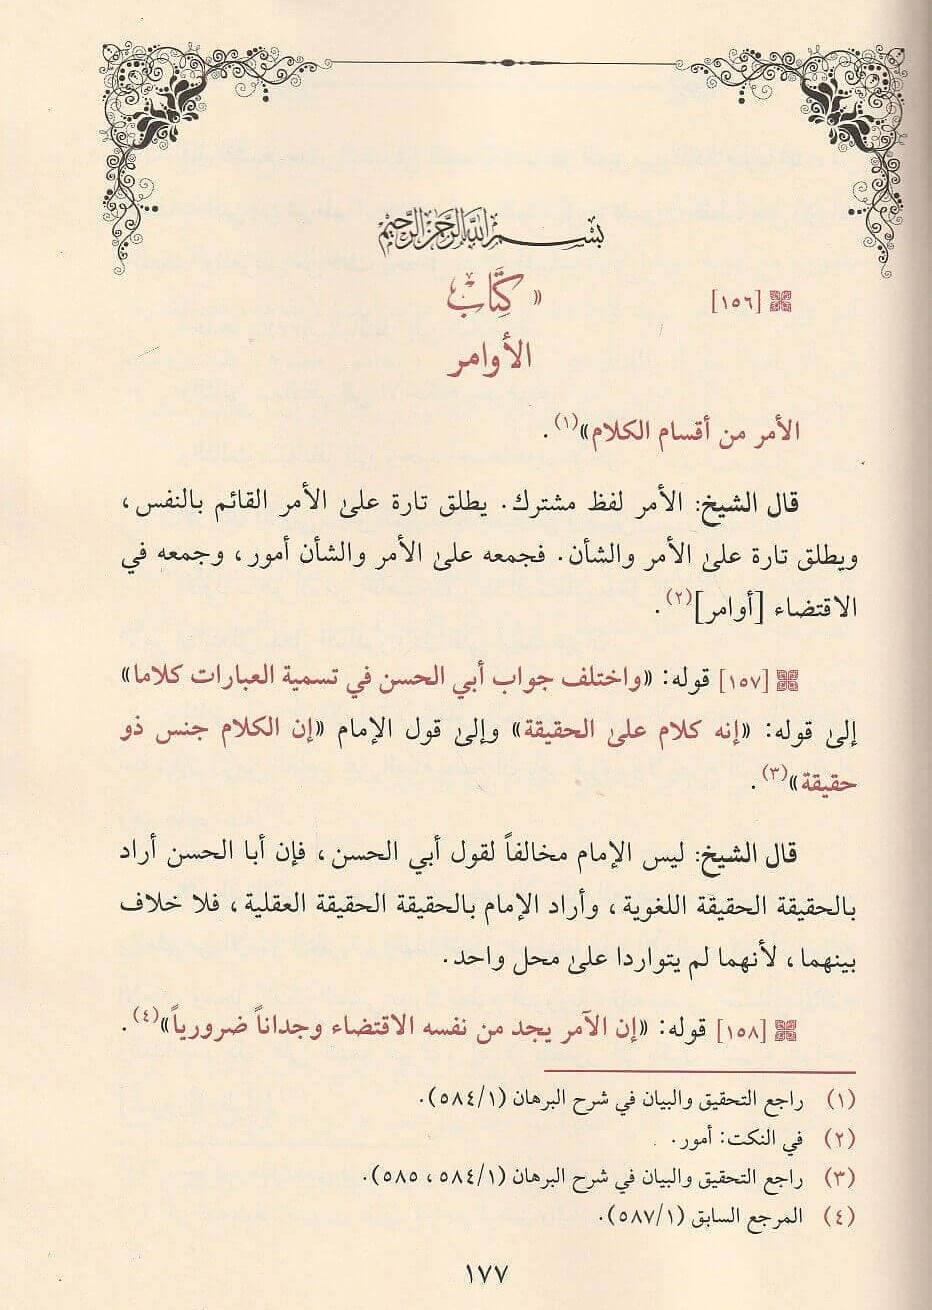 بسم الله الرحمن الرحيم
[١٥٦] « كتاب
الأوامر
الأمر من أقسام الكلام»(١).
قال الشيخ: الأمر لفظ مشترك. يطلق تارة علىٰ الأمر القائم بالنفس،
ويطلق تارة علىٰ الأمر والشأن. فجمعه علىٰ الأمر والشأن أمور، وجمعه في
الاقتضاء [أوامر](٢).
[١٥٧] قوله: «واختلف جواب أبي الحسن في تسمية العبارات كلاما»
إلىٰ قوله: «إنه كلام علىٰ الحقيقة» وإلىٰ قول الإمام «إن الكلام جنس ذو
حقيقة»(٣).
قال الشيخ: ليس الإمام مخالفاً لقول أبي الحسن، فإن أبا الحسن أراد
بالحقيقة الحقيقة اللغوية، وأراد الإمام بالحقيقة الحقيقة العقلية، فلا خلاف
بينهما، لأنهما لم يتواردا علىٰ محل واحد.
[١٥٨] قوله: «إن الآمر يجد من نفسه الاقتضاء وجداناً ضرورياً»(٤).
(١) راجع التحقيق والبيان في شرح البرهان (٥٨٤/١).
(٢) في النكت: أمور.
(٣) راجع التحقيق والبيان في شرح البرهان (٥٨٤/١، ٥٨٥).
(٤) المرجع السابق (٥٨٧/١).
١٧٧